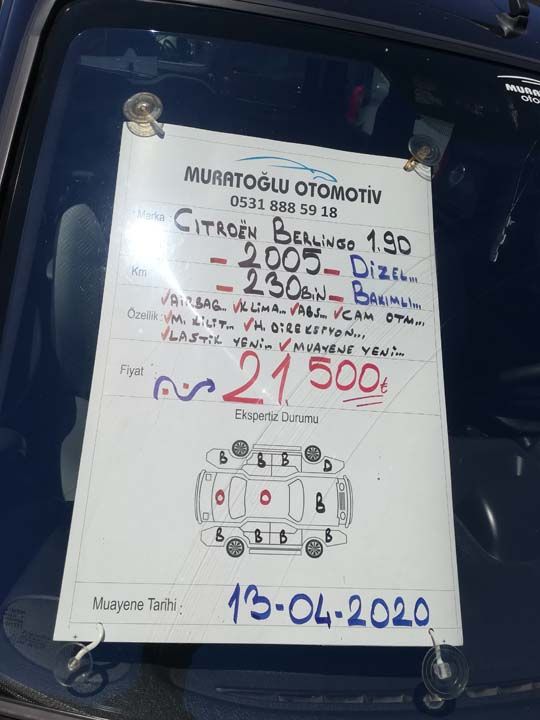 MURATOĞLU OTOMOTİV
0531 888 59 18
Marka: CITROËN BERLINGO 1.90
- 2005 - DİZEL...
Km - 230 BİN - BAKIMLI...
✓AİRBAG.. ✓KLİMA.. ✓ABS.. ✓CAM OTM...
Özellik: ✓M. KİLİT.. ✓H. DİREKSİYON...
✓LASTİK YENİ.. ✓MUAYENE YENİ...
Fiyat 21.500₺
Ekspertiz Durumu
B B B D
O O B
B B B B
Muayene Tarihi : 13-04-2020